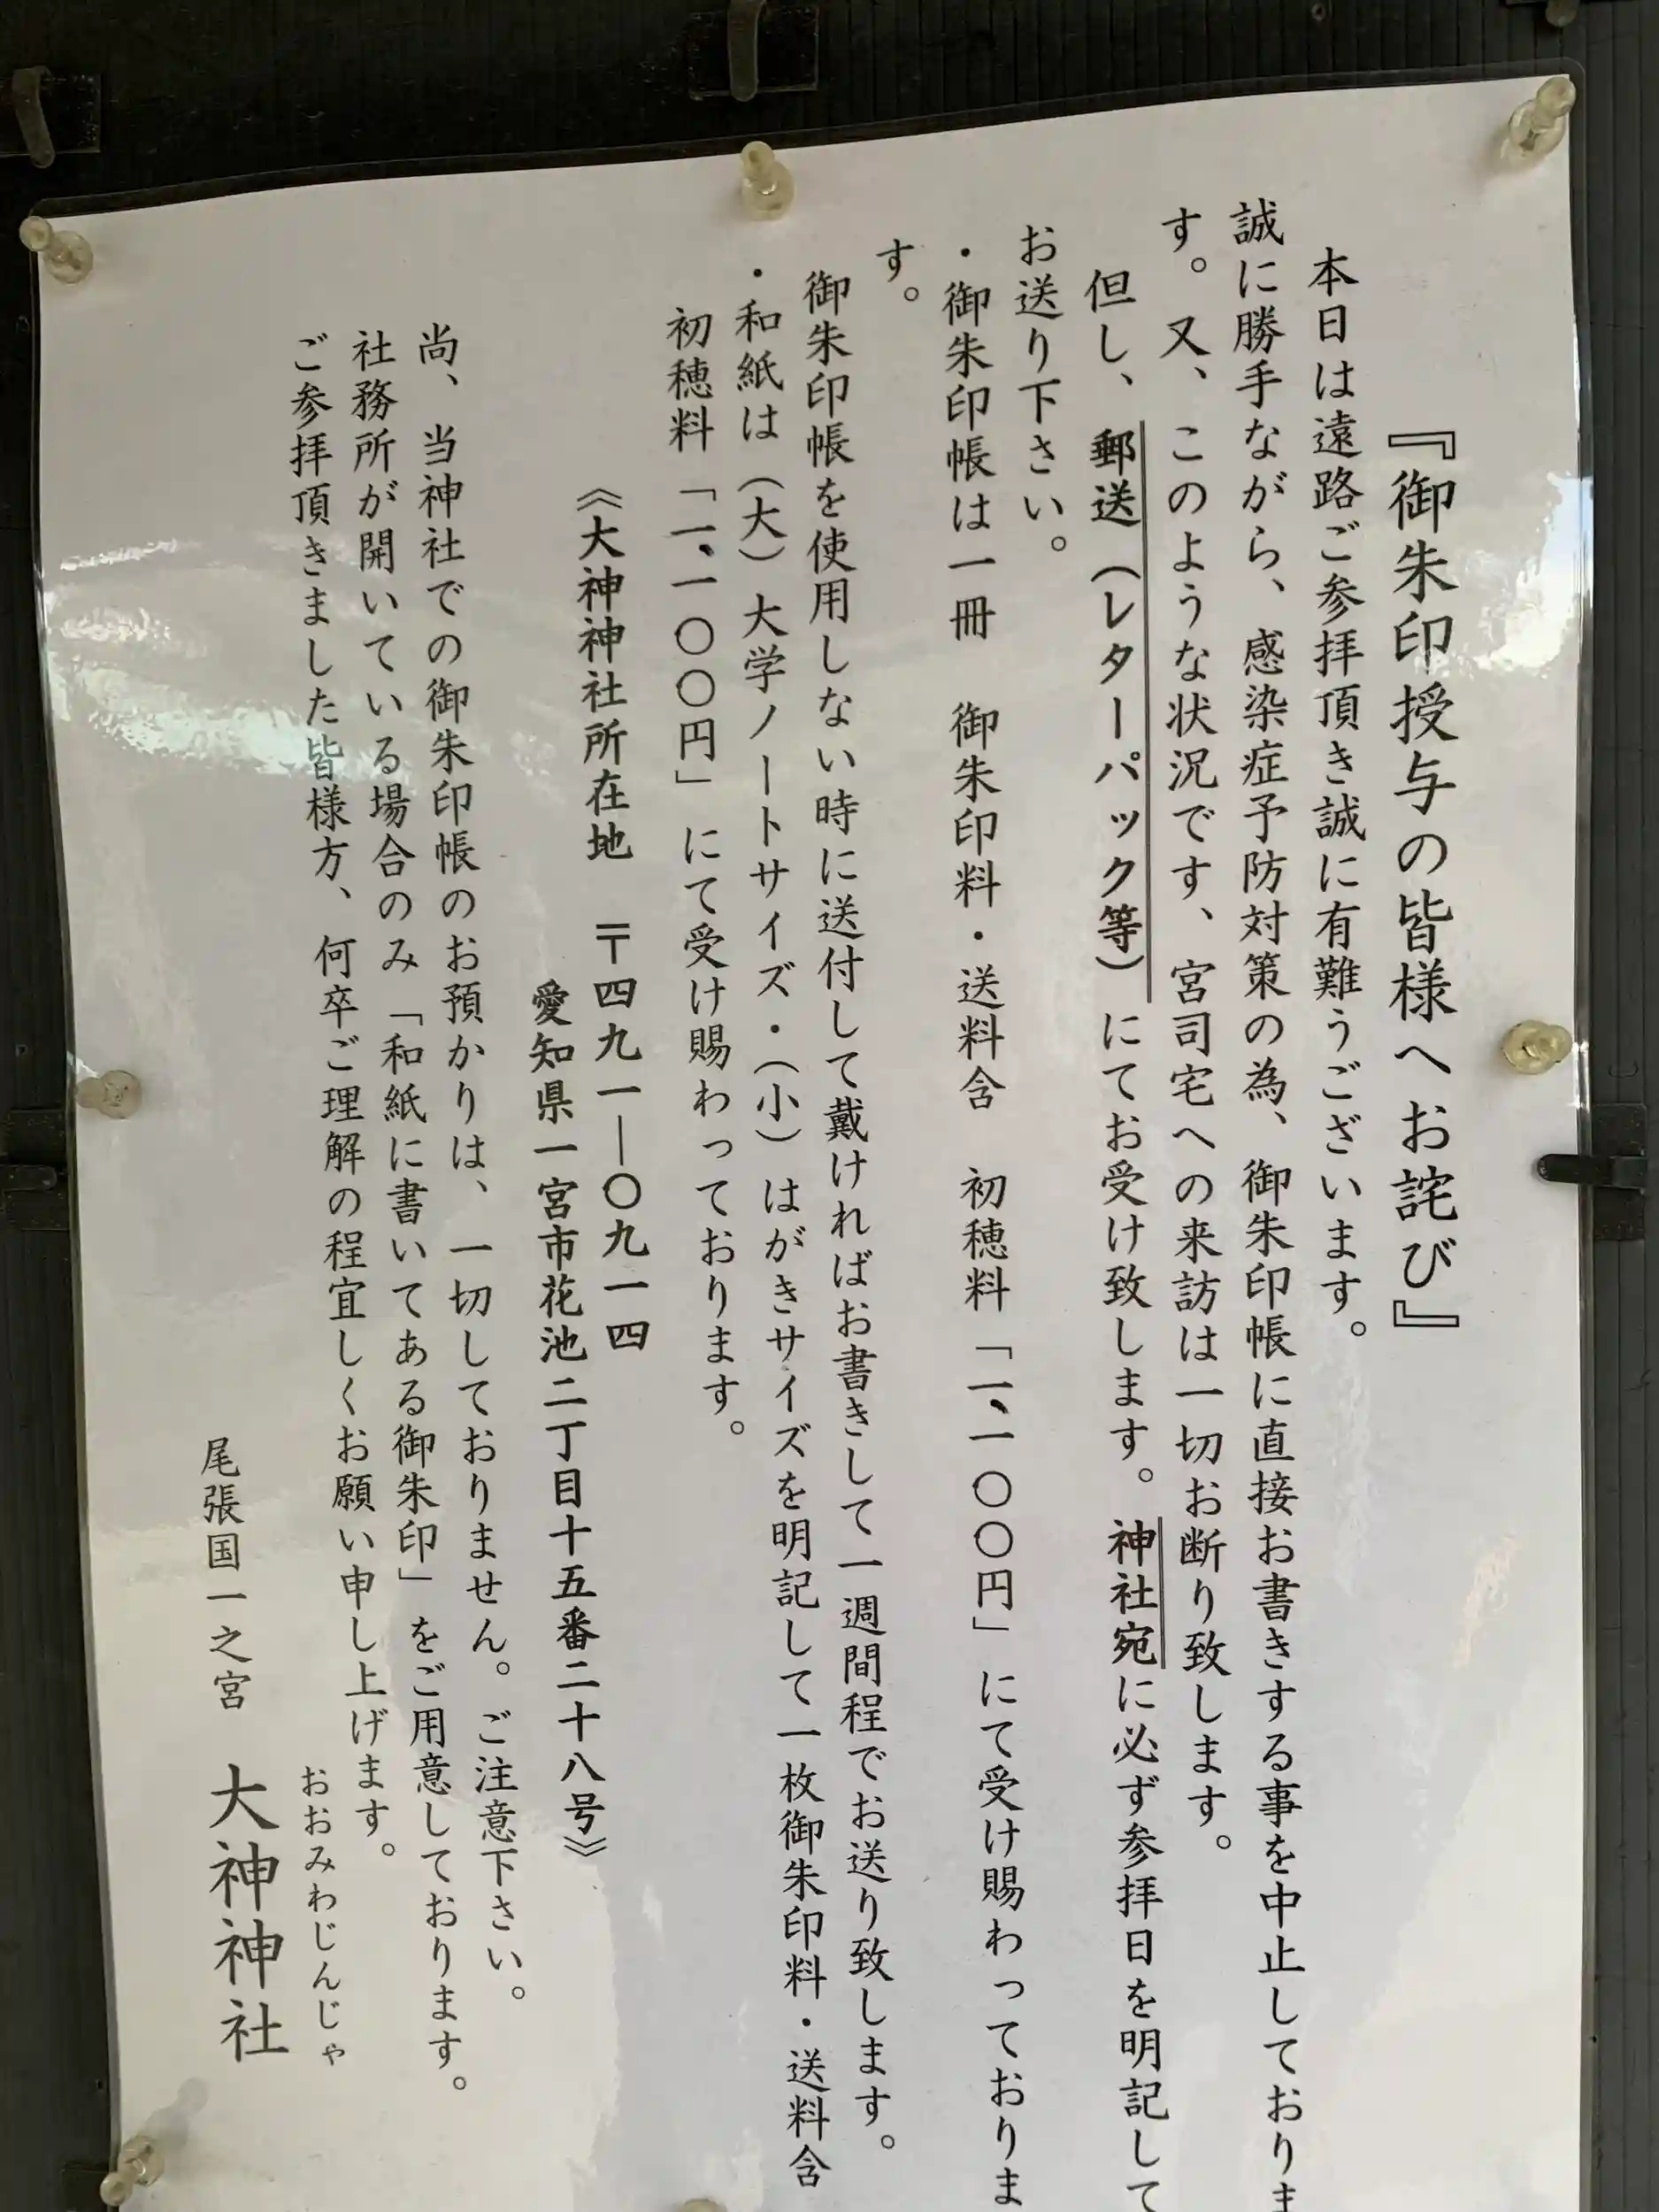 『御朱印授与の皆様へお詫び』
本日は遠路ご参拝頂き誠に有難うございます。
誠に勝手ながら、感染症予防対策の為、御朱印帳に直接お書きする事を中止しておりま
す。又、このような状況です、宮司宅への来訪は一切お断り致します。
但し、郵送（レターパック等）にてお受け致します。神社宛に必ず参拝日を明記して
お送り下さい。
・御朱印帳は一冊　御朱印料・送料含　初穂料「一、一〇〇円」にて受け賜わっておりま
す。
御朱印帳を使用しない時に送付して戴ければお書きして一週間程でお送り致します。
・和紙は（大）大学ノートサイズ・（小）はがきサイズを明記して一枚御朱印料・送料含
初穂料「一、一〇〇円」にて受け賜わっております。
《大神神社所在地　〒四九一―〇九一四
愛知県一宮市花池二丁目十五番二十八号》
尚、当神社での御朱印帳のお預かりは、一切しておりません。ご注意下さい。
社務所が開いている場合のみ「和紙に書いてある御朱印」をご用意しております。
ご参拝頂きました皆様方、何卒ご理解の程宜しくお願い申し上げます。
おおみわじんじゃ
尾張国一之宮　大神神社